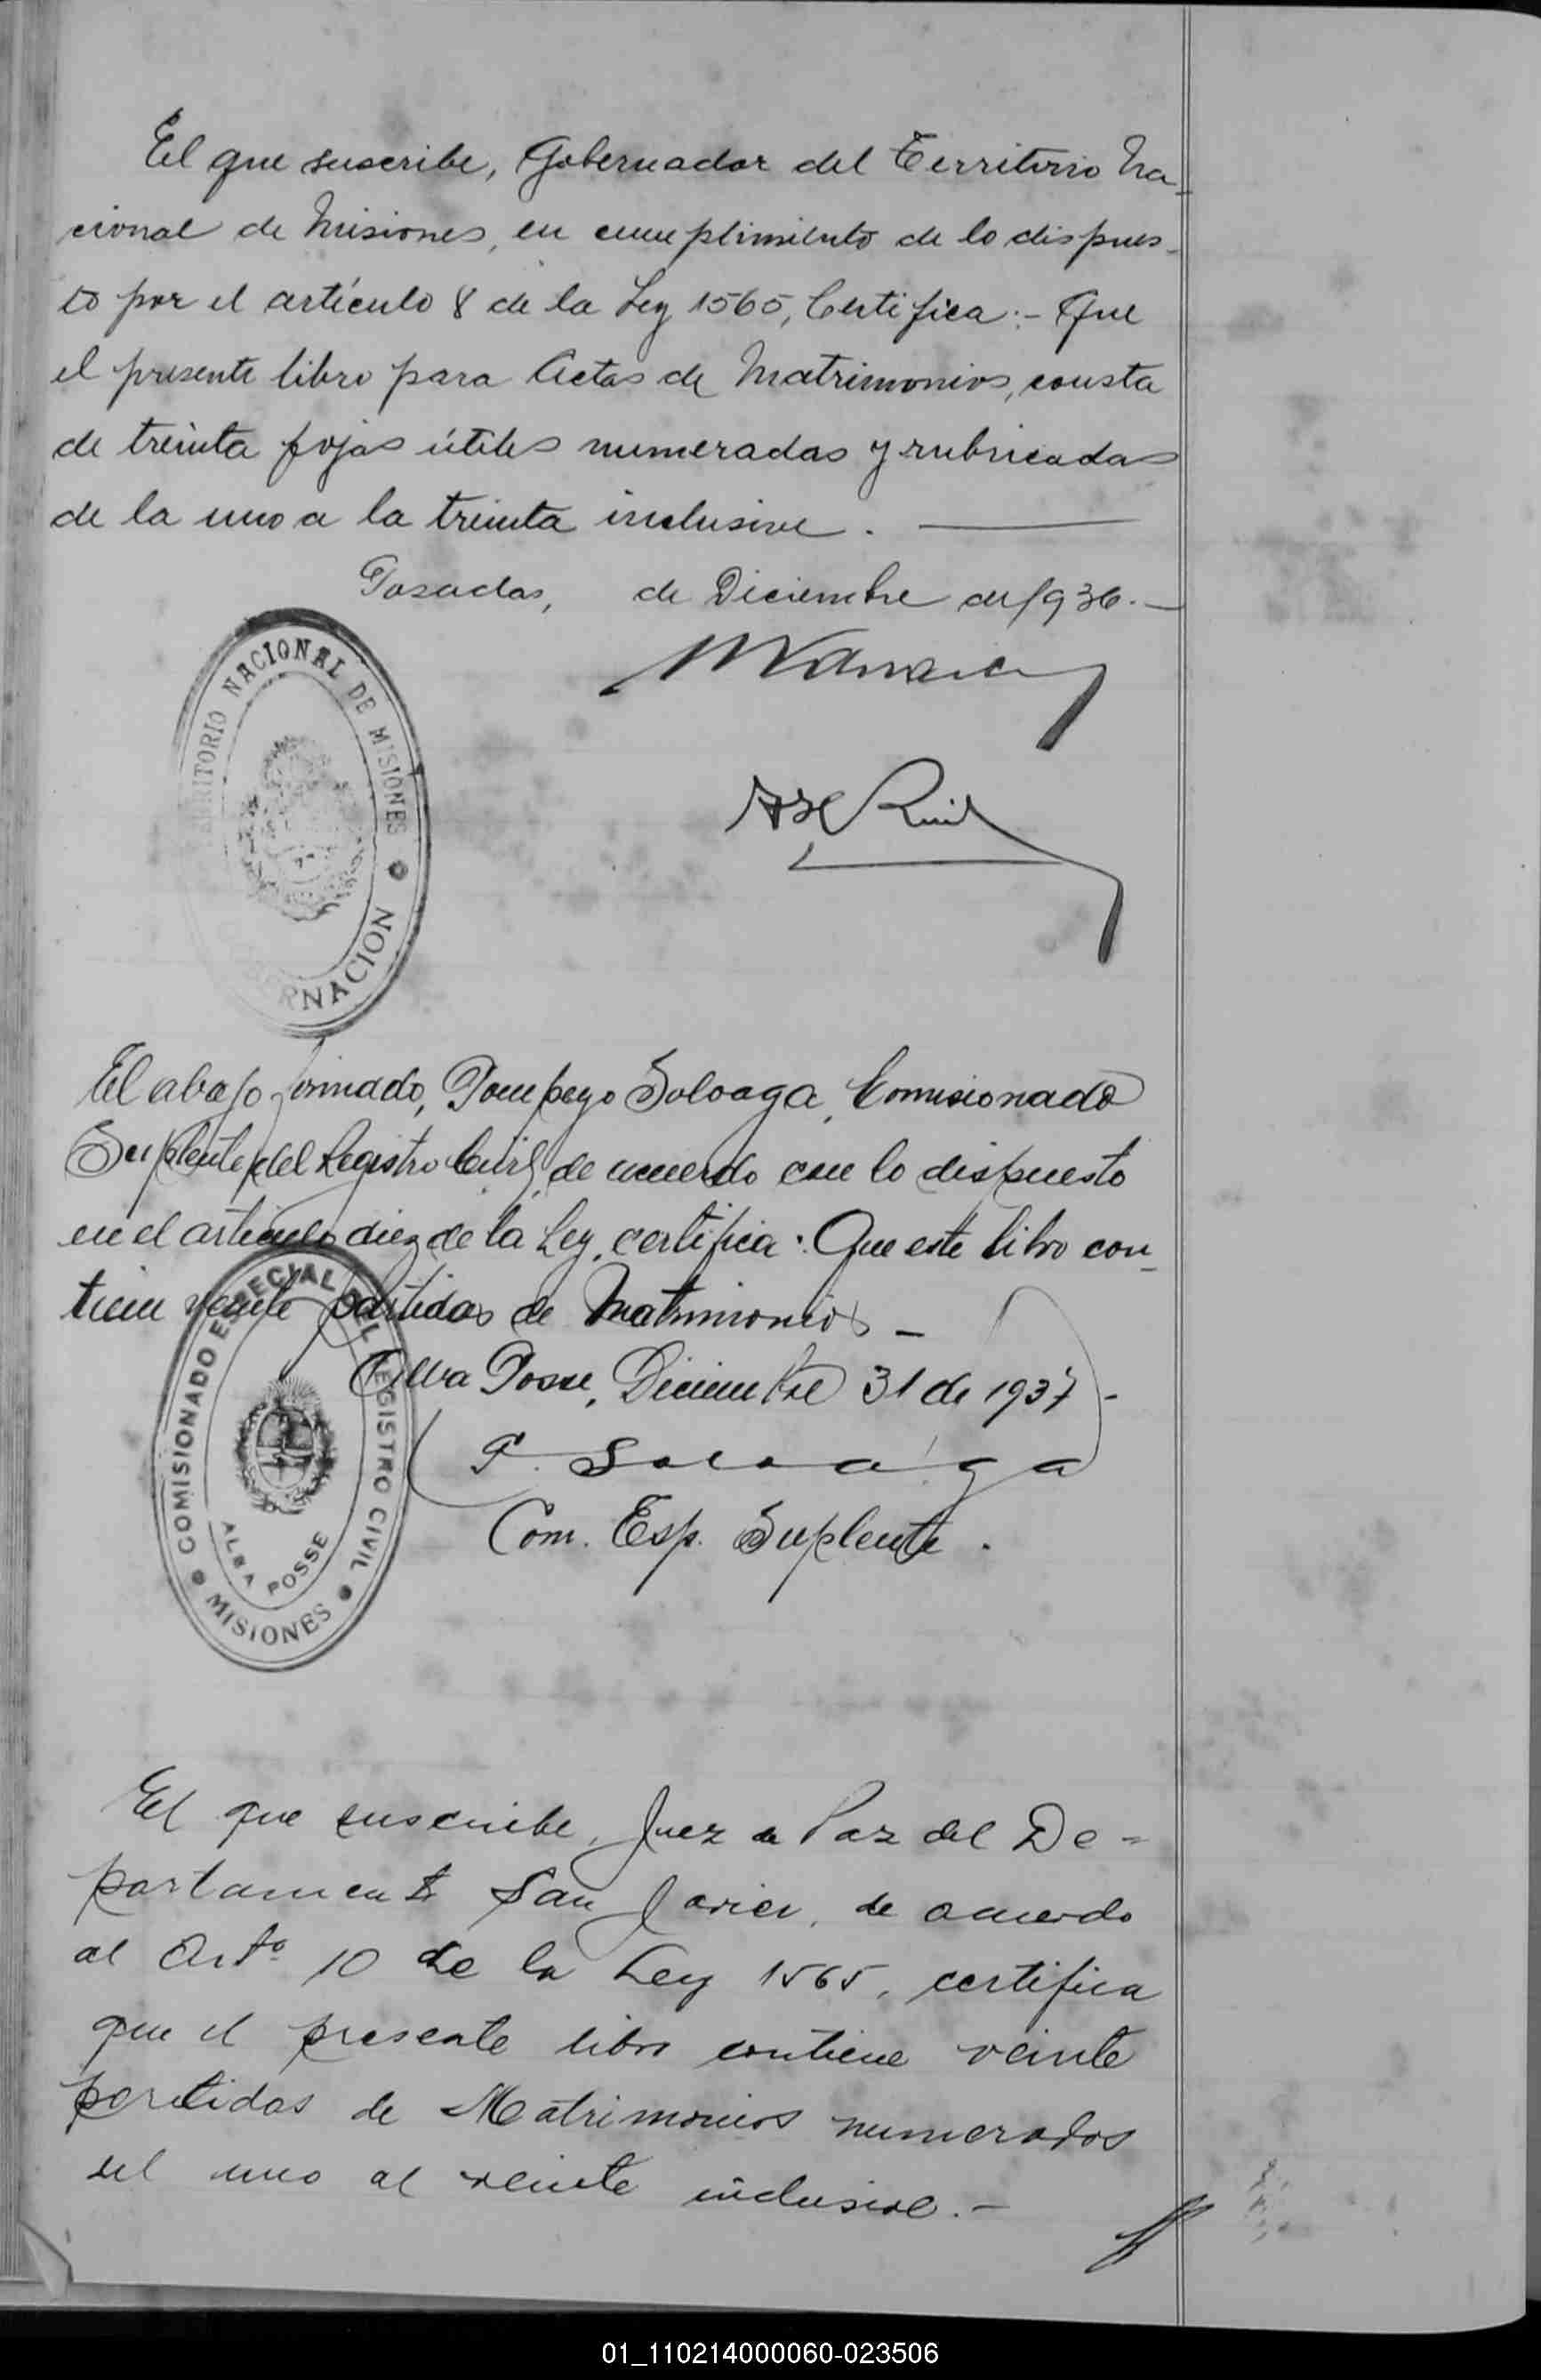 El que suscribe, Gobernador del Territorio Na-
cional de Misiones, en cumplimiento de lo dispues-
to por el artículo 8 de la Ley 1565, Certifica:- Que
el presente libro para Actas de Matrimonios, consta
de treinta fojas útiles numeradas y rubricadas
de la uno a la treinta inclusive.
Posadas, de Diciembre de 1936.-
TERRITORIO NACIONAL DE MISIONES
GOBERNACION
El abajo firmado, Pompeyo Soloaga, Comisionado
Suplente del Registro Civil, de acuerdo con lo dispuesto
en el artículo diez de la Ley, certifica: Que este libro con-
tiene veinte partidas de Matrimonios -
Alba Posse, Diciembre 31 de 1937-
P. Soloaga
Com. Esp. Suplente.
COMISIONADO ESPECIAL DEL REGISTRO CIVIL
ALBA POSSE
MISIONES
El que suscribe, Juez de Paz del De=
partamento San Javier, de acuerdo
al Arto 10 de la Ley 1565, certifica
que el presente libro contiene veinte
partidas de Matrimonios numerados
del uno al veinte inclusive.-
01_110214000060-023506